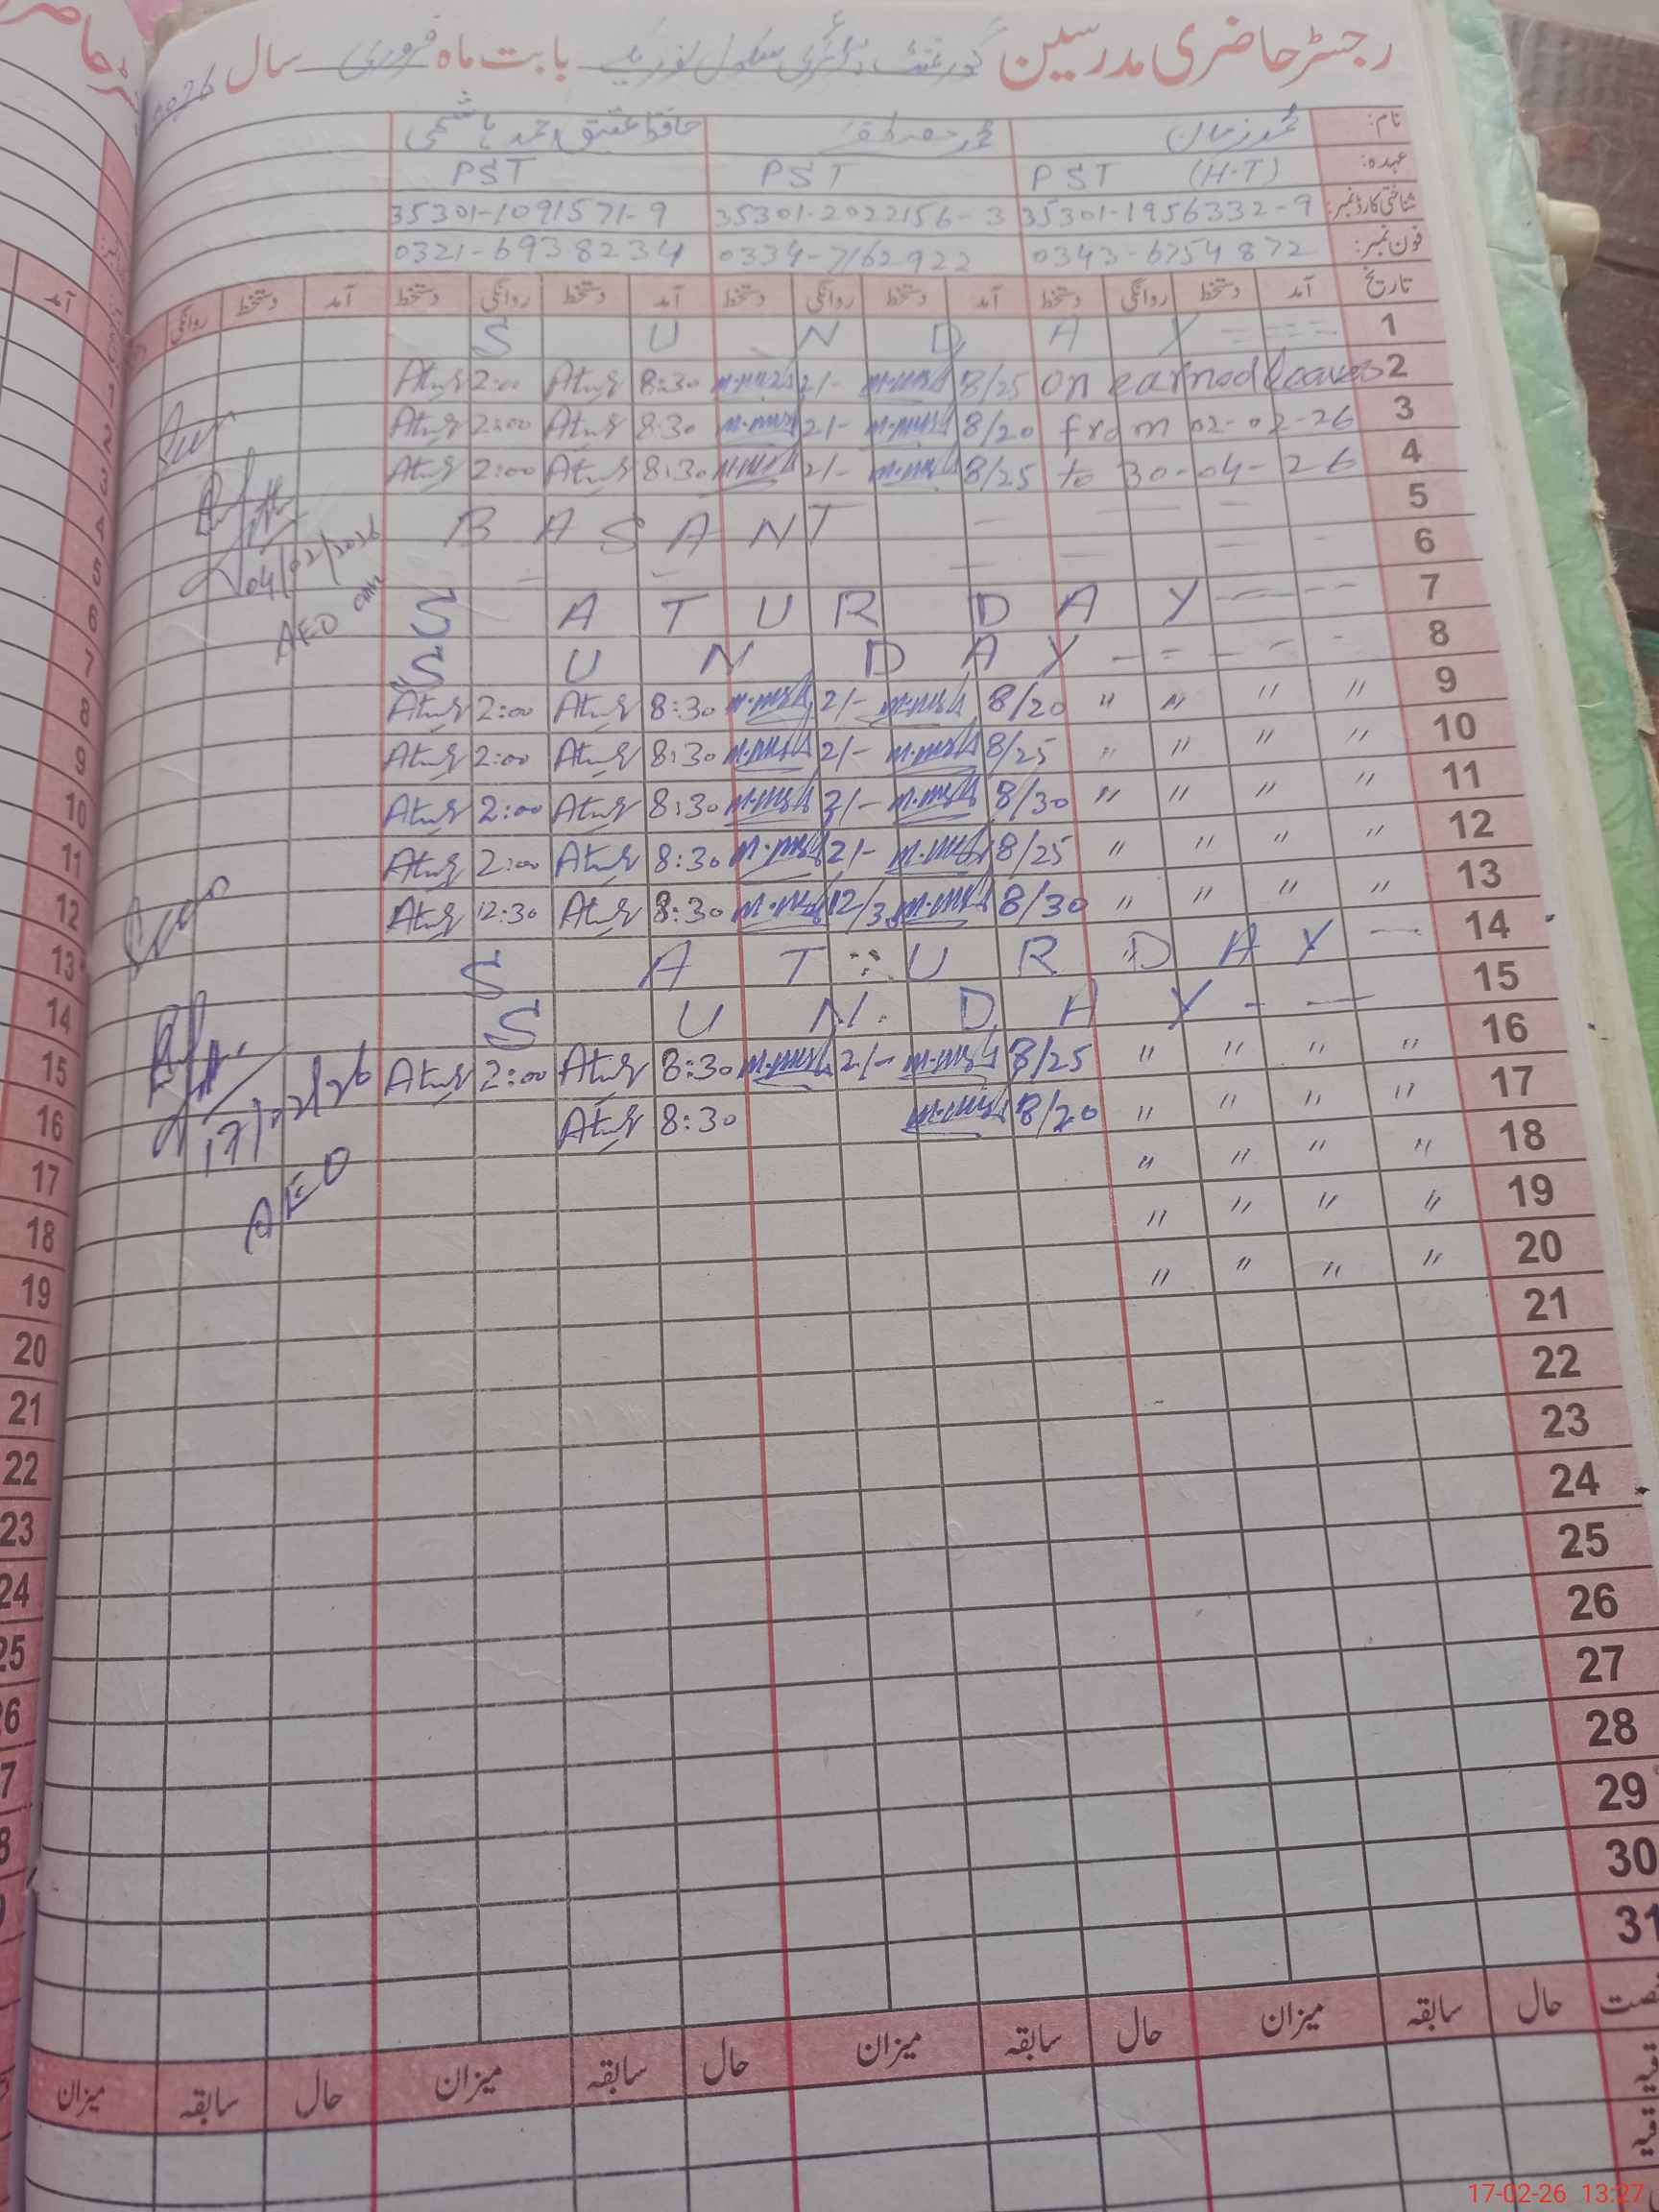 رجسٹر حاضری مدرسین گورنمنٹ پرائمری سکول بابت ماہ فروری سال 2026
نام: محمد زمان محمد حافظ عتیق احمد ہاشمی
عہدہ: PST (H-T) PST PST
شناختی کارڈ نمبر: 35301-1956332-9 35301-2022156-3 35301-1091571-9
فون نمبر: 0343-6754872 0334-7162922 0321-6938234
تاریخ آمد دستخط روانگی دستخط آمد دستخط روانگی دستخط آمد دستخط روانگی دستخط آمد دستخط روانگی
1 S U N D A Y
2 2:00 8:30 2/- 8/25 on earned leaves
3 2:00 8:30 2/- 8/20 from 02-02-26
4 2:00 8:30 2/- 8/25 to 30-04-26
5 B A S A N T
6
04/02/2026
AEO
7 S A T U R D A Y
8 S U N D A Y
9 2:00 8:30 2/- 8/20 " " " "
10 2:00 8:30 2/- 8/25 " " " "
11 2:00 8:30 2/- 8/30 " " " "
12 2:00 8:30 2/- 8/25 " " " "
13 12:30 8:30 12/30 8/30 " " " "
14 S A T U R D A Y
15 S U N D A Y
16 2:00 8:30 2/- 8/25 " " " "
17 8:30 8/20 " " " "
17/02/26
AEO
18 " " " "
19 " " " "
20 " " " "
21
22
23
24
25
26
27
28
29
30
31
حال سابقہ میزان حال سابقہ میزان حال سابقہ میزان حال سابقہ میزان
17-02-26 13:27